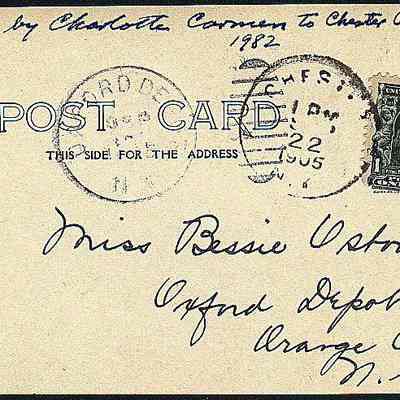 by Charlotte Carmen to Chester
1982
POST CARD
THIS SIDE FOR THE ADDRESS
OXFORD DE
N.Y.
CHEST
1 PM
22
1905
N.Y.
Miss Bessie Osbo
Oxford Depo
Orange
N.